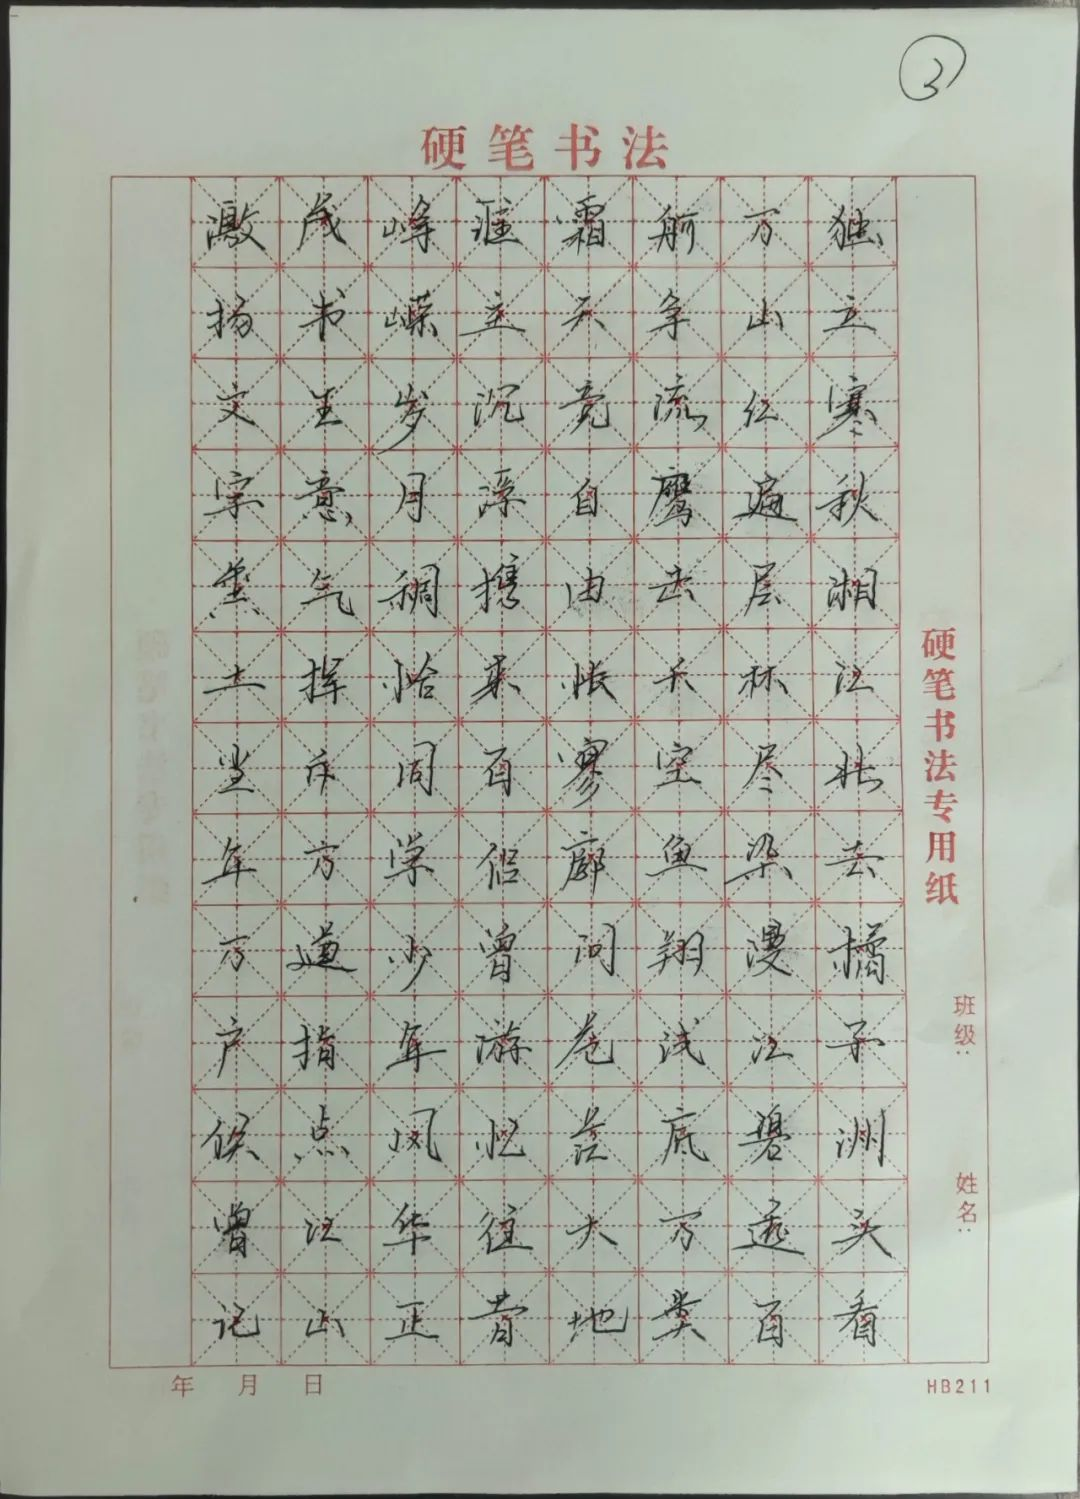 3
硬笔书法
独立寒秋湘江北去橘子洲头看
万山红遍层林尽染漫江碧透百
舸争流鹰击长空鱼翔浅底万类
霜天竞自由怅寥廓问苍茫大地
谁主沉浮携来百侣曾游忆往昔
峥嵘岁月稠恰同学少年风华正
茂书生意气挥斥方遒指点江山
激扬文字粪土当年万户侯曾记
硬笔书法专用纸
班级:
姓名:
年 月 日
HB211